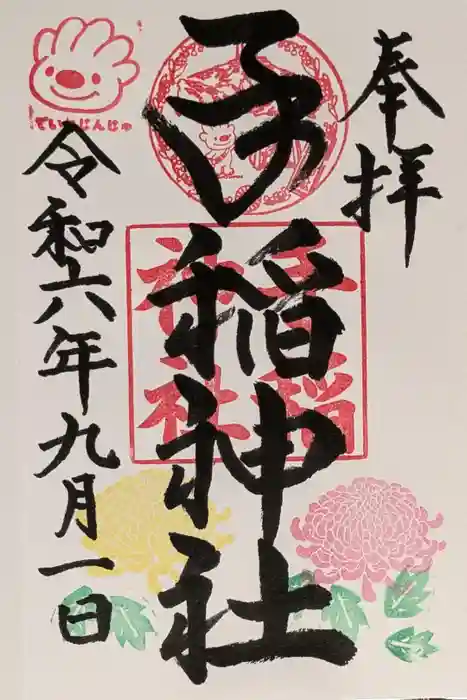 奉拝
手稲神社
手稲
神社
ていねじんじゃ
令和六年九月一日